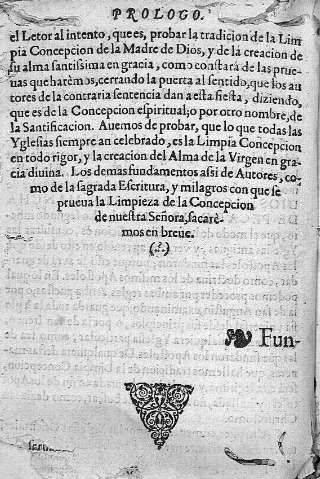 PROLOGO.
el Letor al intento, que es, probar la tradicion de la Lim
pia Concepcion de la Madre de Dios, y de la creacion de
su alma santissima en gracia, como constarà de las prue-
uas que harèmos, cerrando la puerta al sentido, que los au
tores de la contraria sentencia dan a esta fiesta, diziendo,
que es de la Concepcion espiritual; o por otro nombre, de
la Santificacion. Auemos de probar, que lo que todas las
Yglesias siempre an celebrado, es la Limpia Concepcion
en todo rigor, y la creacion del Alma de la Virgen en gra
cia diuina. Los demas fundamentos assi de Autores, co-
mo de la sagrada Escritura, y milagros con que se
prueua la Limpieza de la Concepcion
de nuestra Señora, sacarè-
mos en breue.
(.?.)
Fun-